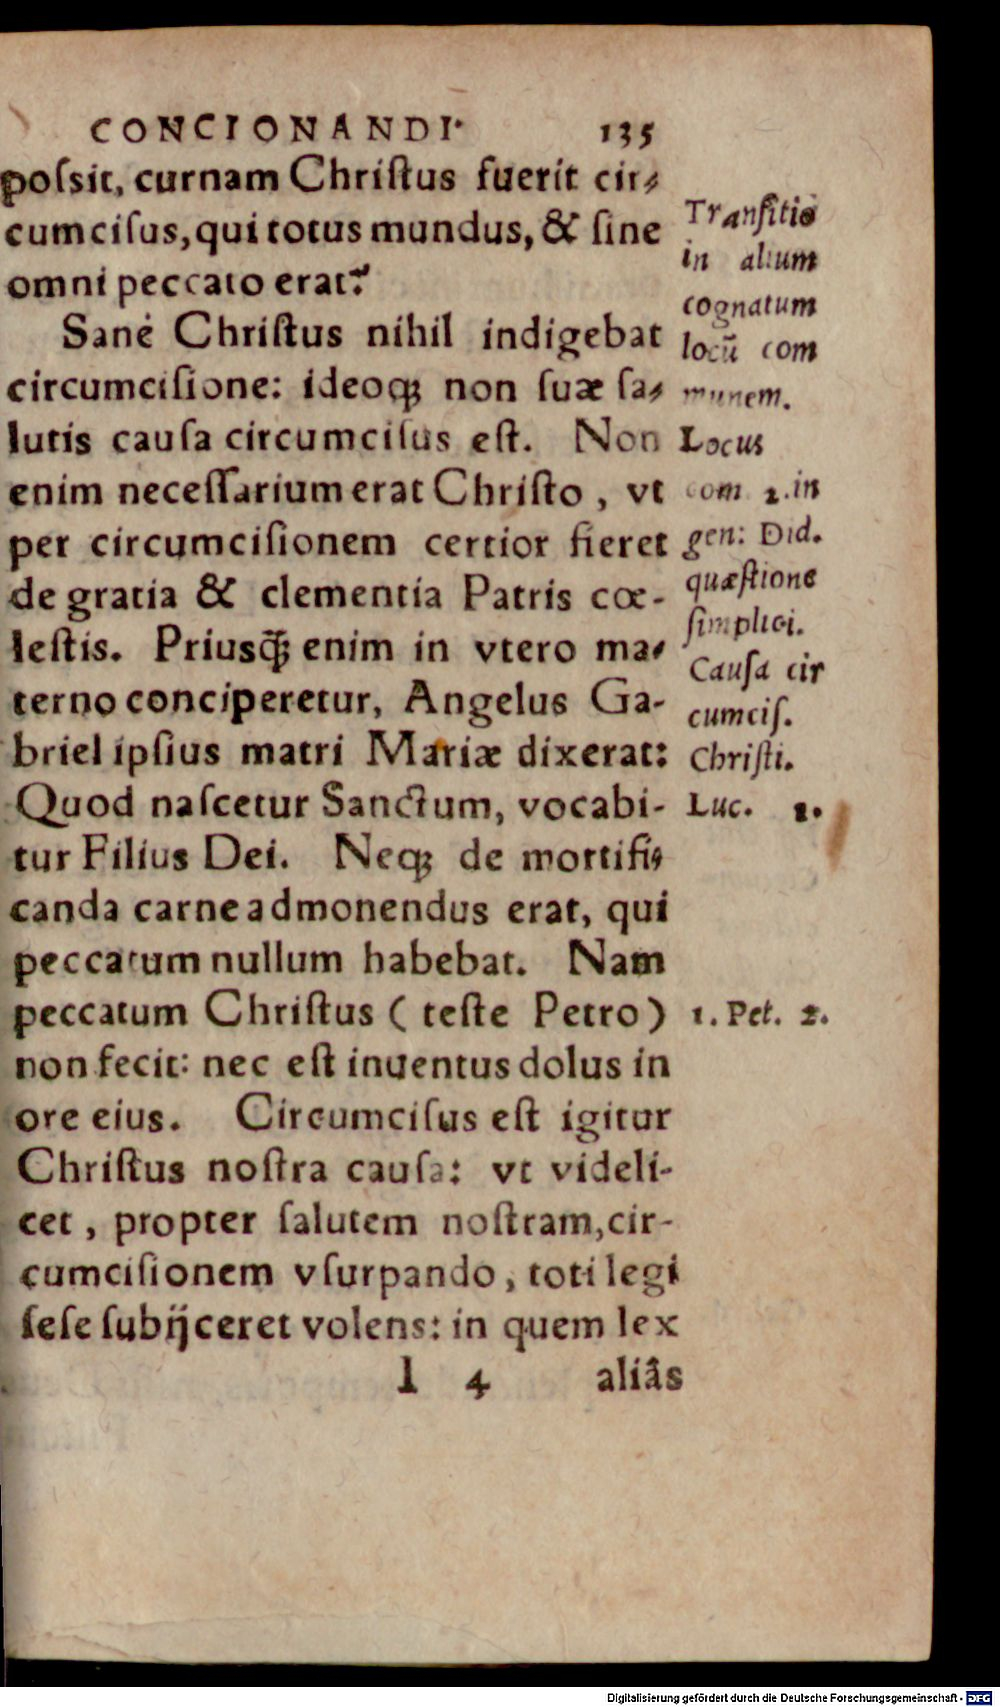 CONCIONANDI. 135
poſsit, curnam Chriſtus fuerit cir-
cumciſus, qui totus mundus, & ſine
omni peccato erat?
Sanè Chriſtus nihil indigebat
circumciſione: ideoq́; non ſuæ ſa-
lutis cauſa circumciſus eſt. Non
enim neceſſarium erat Chriſto, vt
per circumciſionem certior fieret
de gratia & clementia Patris cœ-
leſtis. Priusq̃; enim in vtero ma-
terno conciperetur, Angelus Ga-
briel ipſius matri Mariæ dixerat:
Quod naſcetur Sanctum, vocabi-
tur Filius Dei. Neq; de mortifi-
canda carne admonendus erat, qui
peccatum nullum habebat. Nam
peccatum Chriſtus (teſte Petro)
non fecit: nec eſt inuentus dolus in
ore eius. Circumciſus eſt igitur
Chriſtus noſtra cauſa: vt videli-
cet, propter ſalutem noſtram, cir-
cumciſionem vſurpando, toti legi
ſeſe ſubijceret volens: in quem lex
l 4 aliâs
Tranſitio
in alium
cognatum
locū com
munem.
Locus
com 2. in
gen: Did.
quæſtione
ſimplici.
Cauſa cir
cumciſ.
Chriſti.
Luc. 1.
1. Pet. 2.
Digitalisierung gefördert durch die Deutsche Forschungsgemeinschaft - DFG